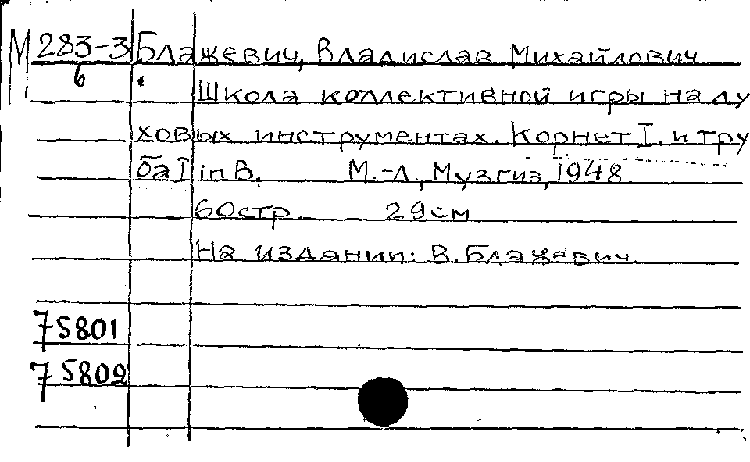 М 283-3 Блажевич, Владислав Михайлович
6
Школа коллективной игры на ду
ховых инструментах. Корнет I. и тру
ба I in B. М.-Л, Музгиз, 1948
60стр 29см
На издании: В. Блажевич
75801
75802